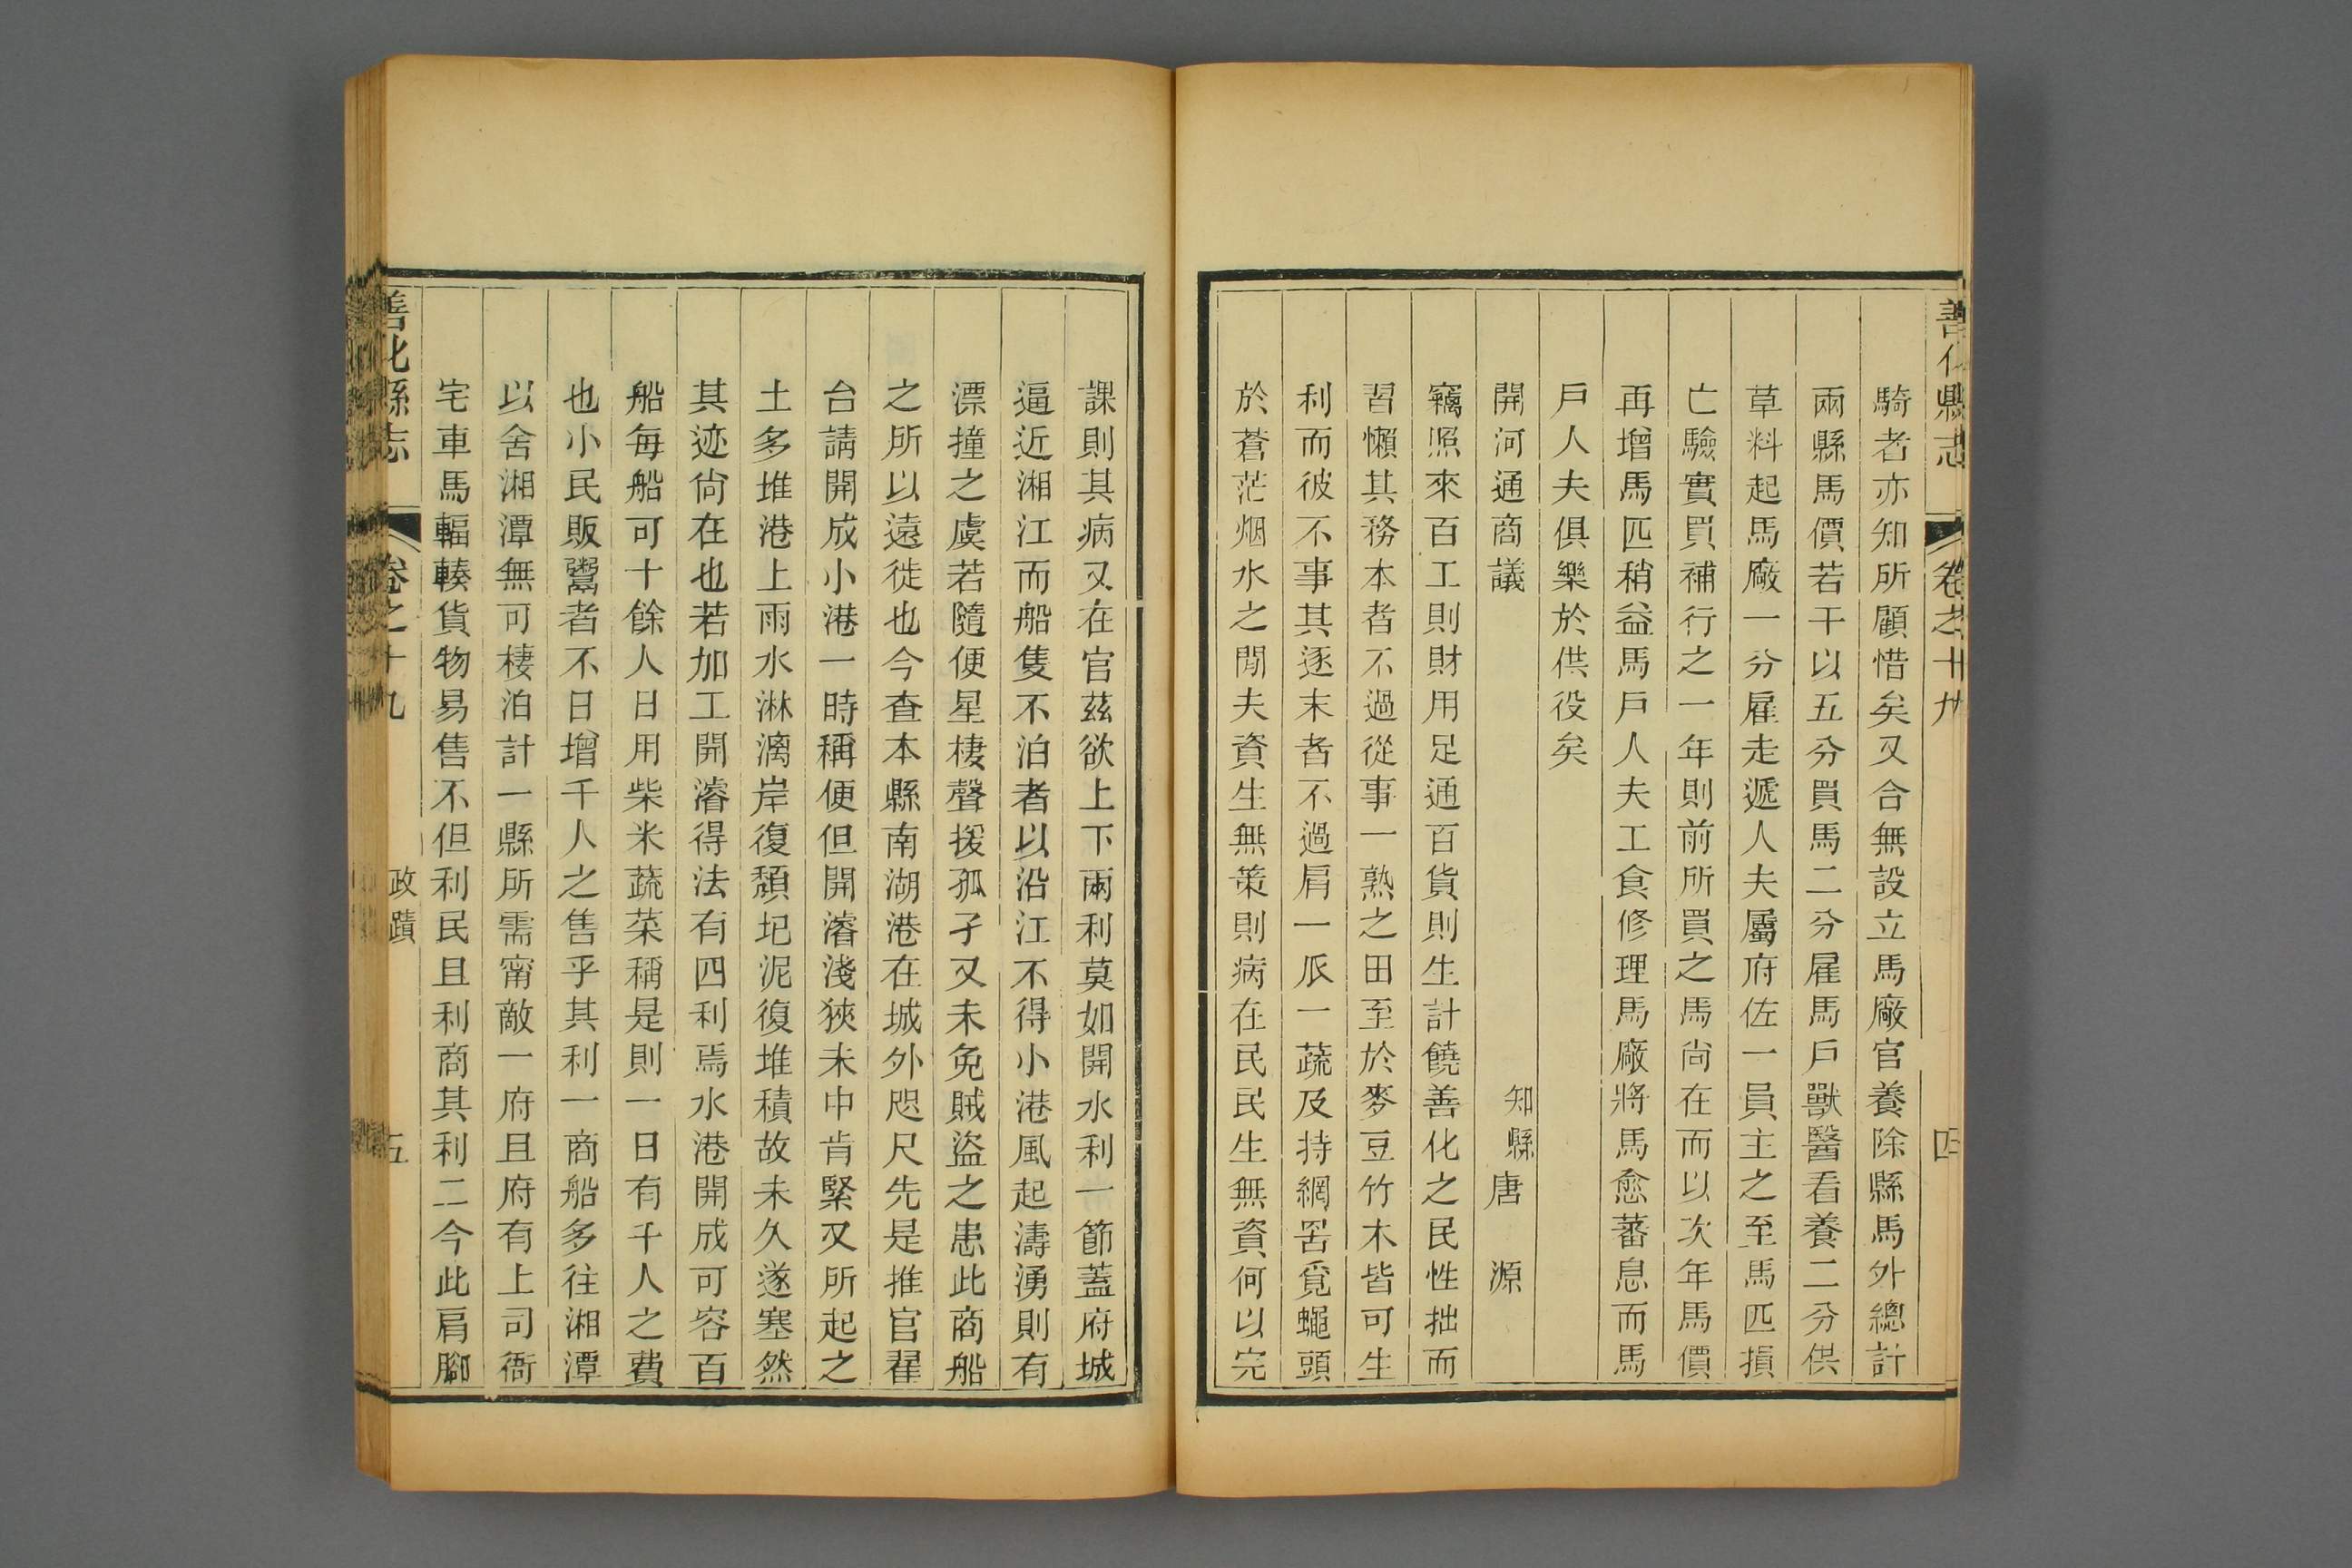 善化縣志 卷之十九 四
騎者亦知所顧惜矣又合無設立馬廠官養除縣馬外總計
兩縣馬價若干以五分買馬二分雇馬戶獸醫看養二分供
草料起馬廠一分雇走遞人夫屬府佐一員主之至馬匹損
亡驗實買補行之一年則前所買之馬尚在而以次年馬價
再增馬匹稍益馬戶人夫工食修理馬廠將馬愈蕃息而馬
戶人夫俱樂於供役矣
開河通商議 知縣唐 源
竊照來百工則財用足通百貨則生計饒善化之民性拙而
習懶其務本者不過從事一熟之田至於麥豆竹木皆可生
利而彼不事其逐末者不過肩一瓜一蔬及持網罟覓蠅頭
於蒼茫烟水之閒夫資生無策則病在民民生無資何以完
課則其病又在官茲欲上下兩利莫如開水利一節蓋府城
逼近湘江而船隻不泊者以沿江不得小港風起濤湧則有
漂撞之虞若隨便星棲聲援孤孑又未免賊盜之患此商船
之所以遠徙也今查本縣南湖港在城外咫尺先是推官翟
台請開成小港一時稱便但開濬淺狹未中肯緊又所起之
土多堆港上雨水淋漓岸復頹圮泥復堆積故未久遂塞然
其迹尙在也若加工開濬得法有四利焉水港開成可容百
船每船可十餘人日用柴米蔬菜稱是則一日有千人之費
也小民販鬻者不日增千人之售乎其利一商船多往湘潭
以舍湘潭無可棲泊計一縣所需甯敵一府且府有上司衙
宅車馬輻輳貨物易售不但利民且利商其利二今此肩腳
善化縣志 卷之十九 政蹟 五